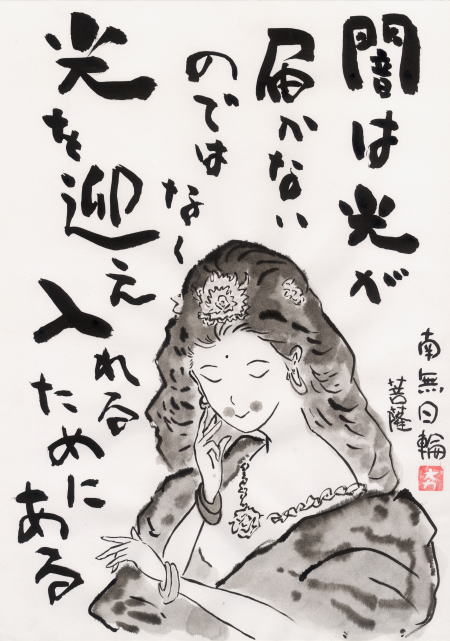 闇は光が
届かない
のでは
なく
光を迎え
入れる
ために
ある
南無日輪
菩薩